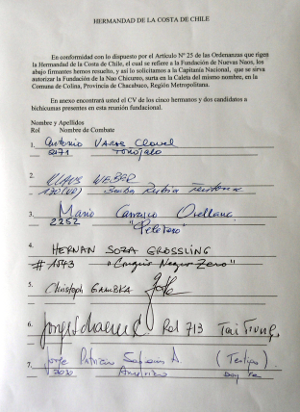 HERMANDAD DE LA COSTA DE CHILE
En conformidad con lo dispuesto por el Artículo Nº 25 de las Ordenanzas que rigen
la Hermandad de la Costa de Chile, el cual se refiere a la Fundación de Nuevas Naos, los
abajo firmantes hemos resuelto, y así lo solicitamos a la Capitanía Nacional, que se sirva
autorizar la Fundación de la Nao Chicureo, surta en la Caleta del mismo nombre, en la
Comuna de Colina, Provincia de Chacabuco, Región Metropolitana.
En anexo encontrará usted el CV de los cinco hermanos y dos candidatos a
bichicumas presentes en esta reunión fundacional.
Nombre y Apellidos
Rol Nombre de Combate
1. Antonio Varas Clavel
2. KLAUS WEBER
Barba Rubia
3. Mario Carrasco Orellana
2252 "Peletero"
4. HERNAN SOZA GROSSLING
# 1573 "Congrio Negro Zeno"
5. Christoph GAMBKA
6. Rol 713
7. Jorge Patricio